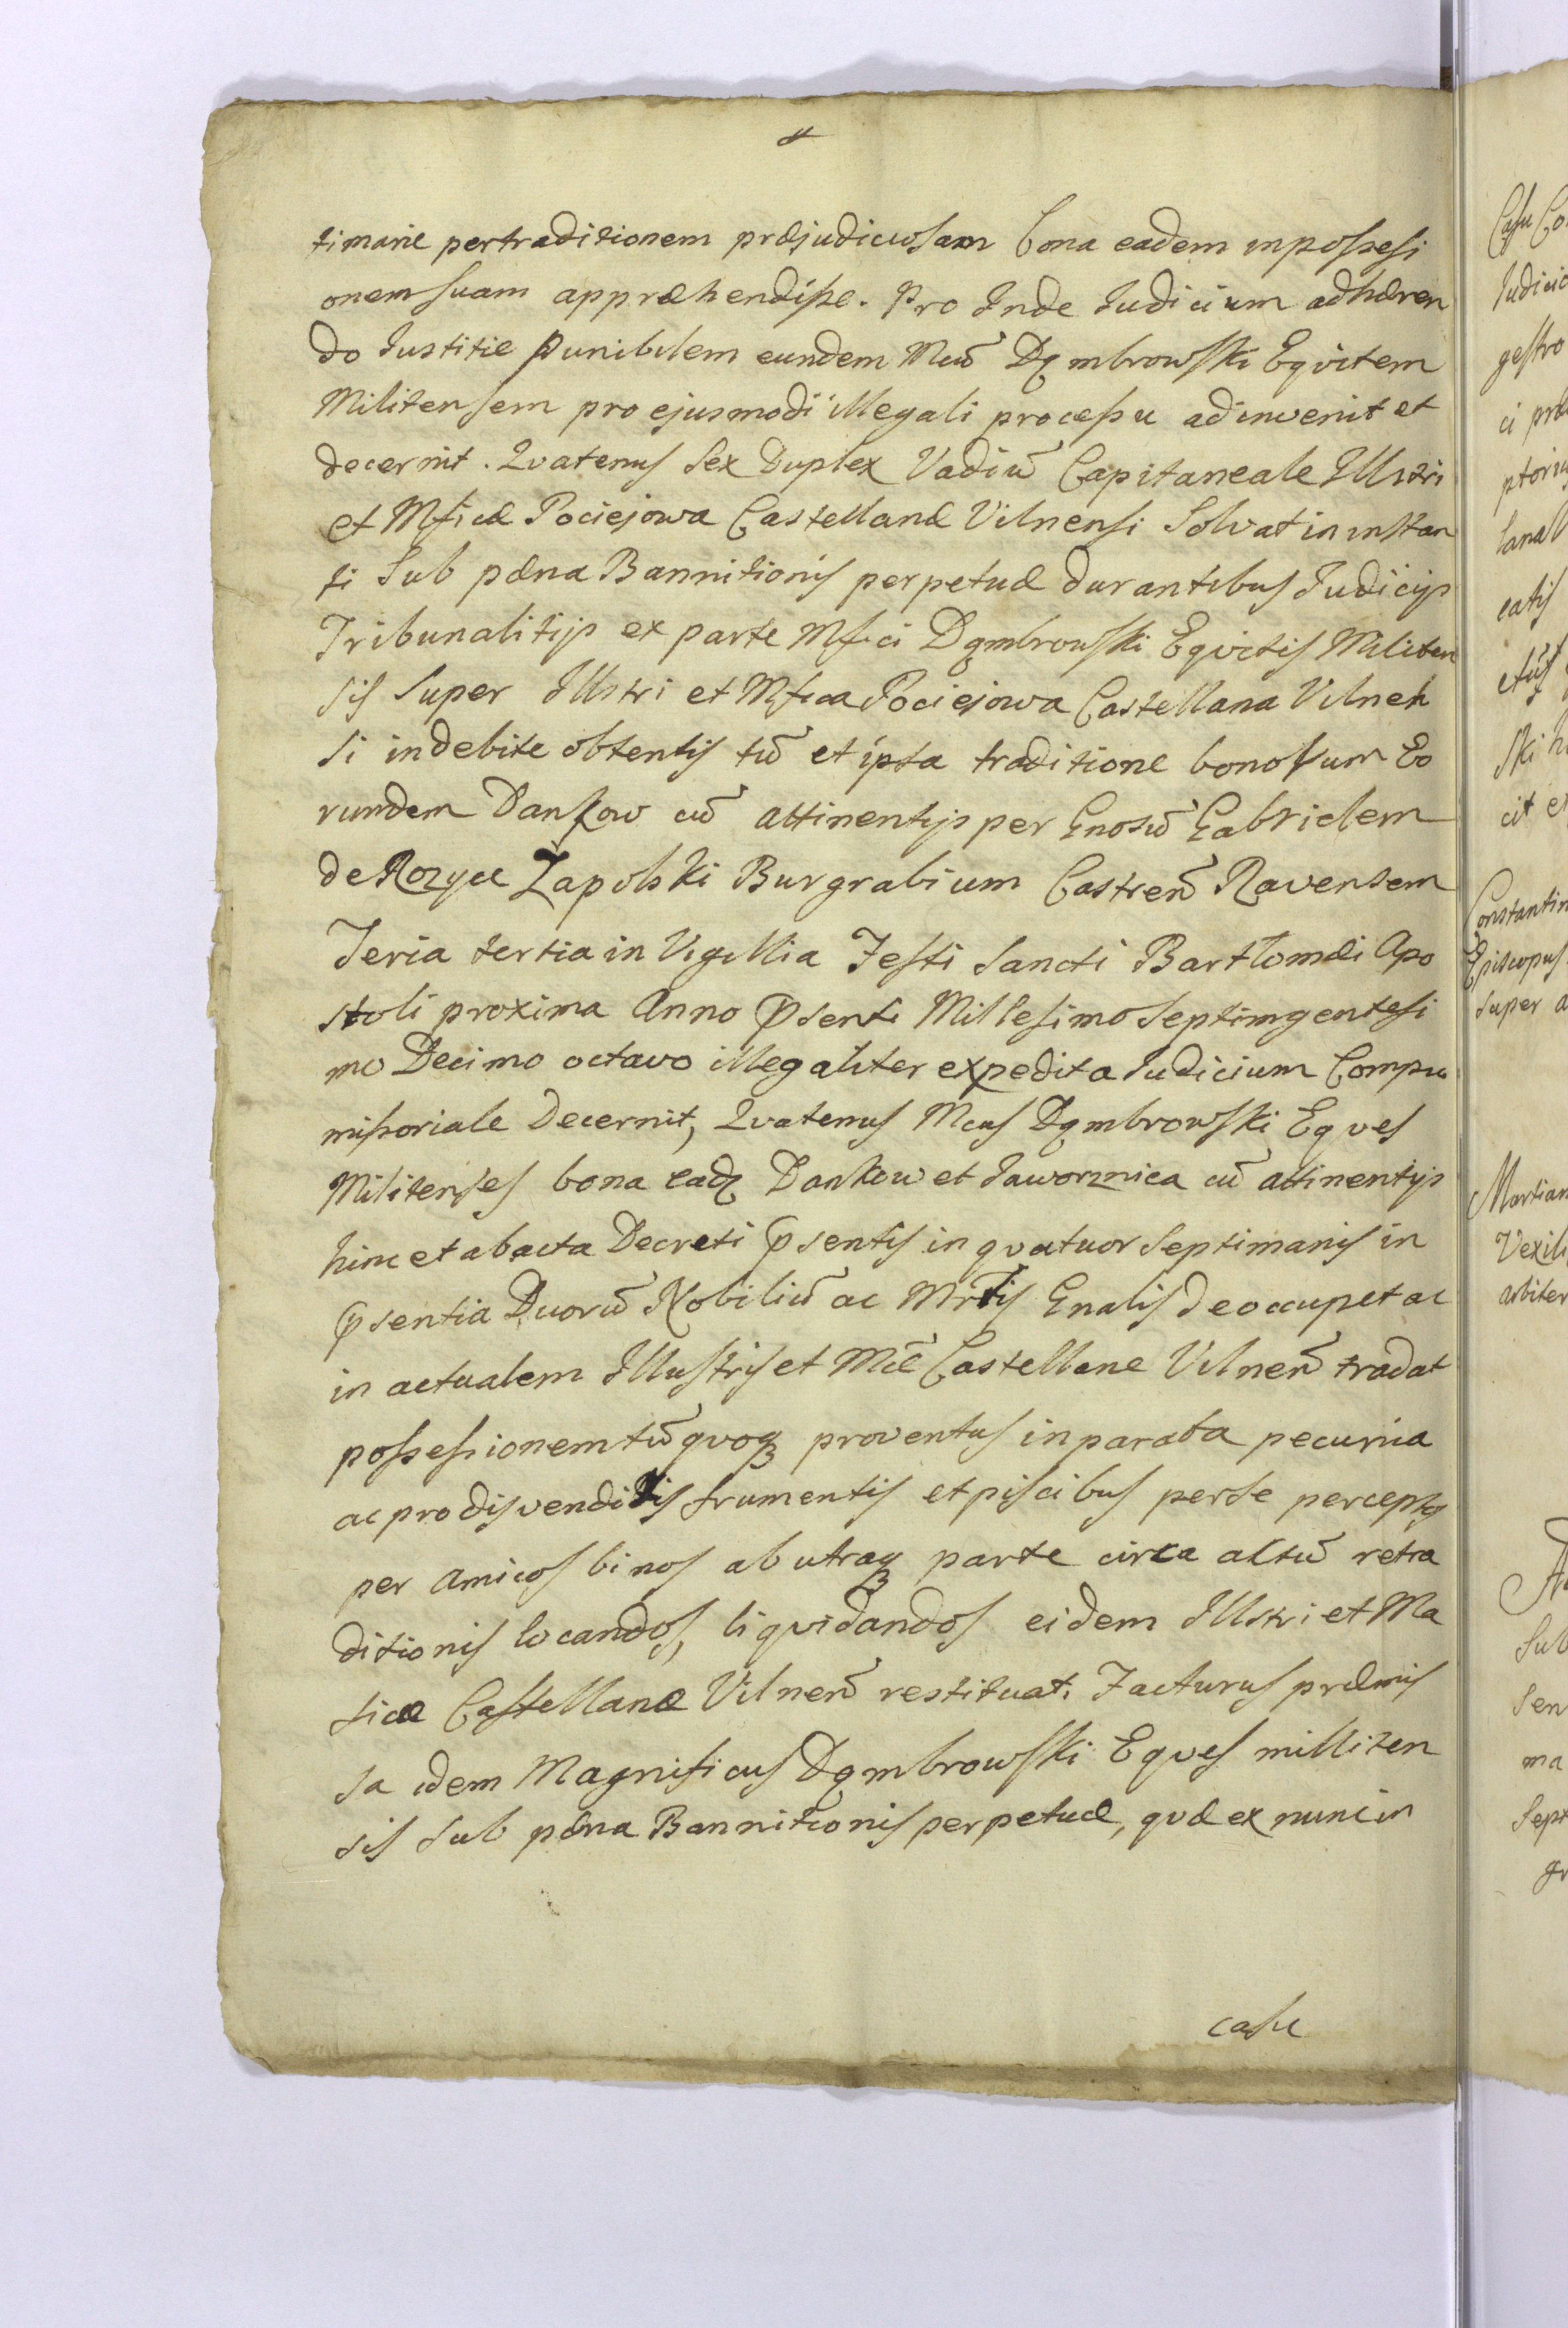 timarie pertraditionem præjudiciosam bona eadem inpossesi
onem suam appræhendisse. Pro Inde Iudicium adhæren
do Iustitie Punibilem eundem Mcũ Dąmbrowski Eqvitem
Militensem pro ejusmodi illegali processu adinvenit et
decernit. Qvatenus Sex Duplex Vadiũ Capitaneale Illstri
et Mficæ Pociejowa Castellanæ Vilnensi Solvat in instan
ti Sub pæna Bannitionis perpetuæ durantibus Judicijs
Tribunalitijs ex parte Mfici Dąmbrowski Eqvitis Militen
sis Super Illstri et Mfica Pociejowa Castellana Vilnen
si indebite obtentis tũ et ipsa traditione bonorum Eo
rundem Dankow cũ attinentijs per Gnosũ Gabrielem
de Rozyce Zapolski Burgrabium Castreñ Ravensem
Feria tertia in Vigillia Festi Sancti Bartlomæi Apo
stoli proxima Anno Psenti Millesimo Septimgentesi
mo Decimo octavo illegaliter expedita Iudicium Compro
missoriale Decernit, Qvatenus Mcus Dąmbrowski Eqves
Militenses bona eadꝫ Dankow et Jaworznica cũ attinentijs
hinc et ab acta Decreti Psentis in qvatuor Septimanis in
Psentia Duorũ Nobiliũ ac Mrłis Gnalis deoccupet ac
in actualem Illustris et Mcæ Castellane Vilneñ tradat
possessionem tũ qvoqꝫ proventus in parata pecunia
ac pro disvenditis frumentis et piscibus per se perceptos
per Amicos binos ab utraqꝫ parte circa actũ retra
ditionis locandos, liqvidandos eidem Illstri et Ma
ficæ Castellanæ Vilneñ restituat. Facturus præmis
sa idem Magnificus Dąmbrowski Eqves milliten
sis sub pæna Bannitionis perpetuæ, qvæ ex nunc in
casu
Iudicio
gestro
ptoriu
eatis
ski
cit
Constantin
Episcopus
super a
Martian
Vexili
arbiter
Sub
Sen
ma
Sept